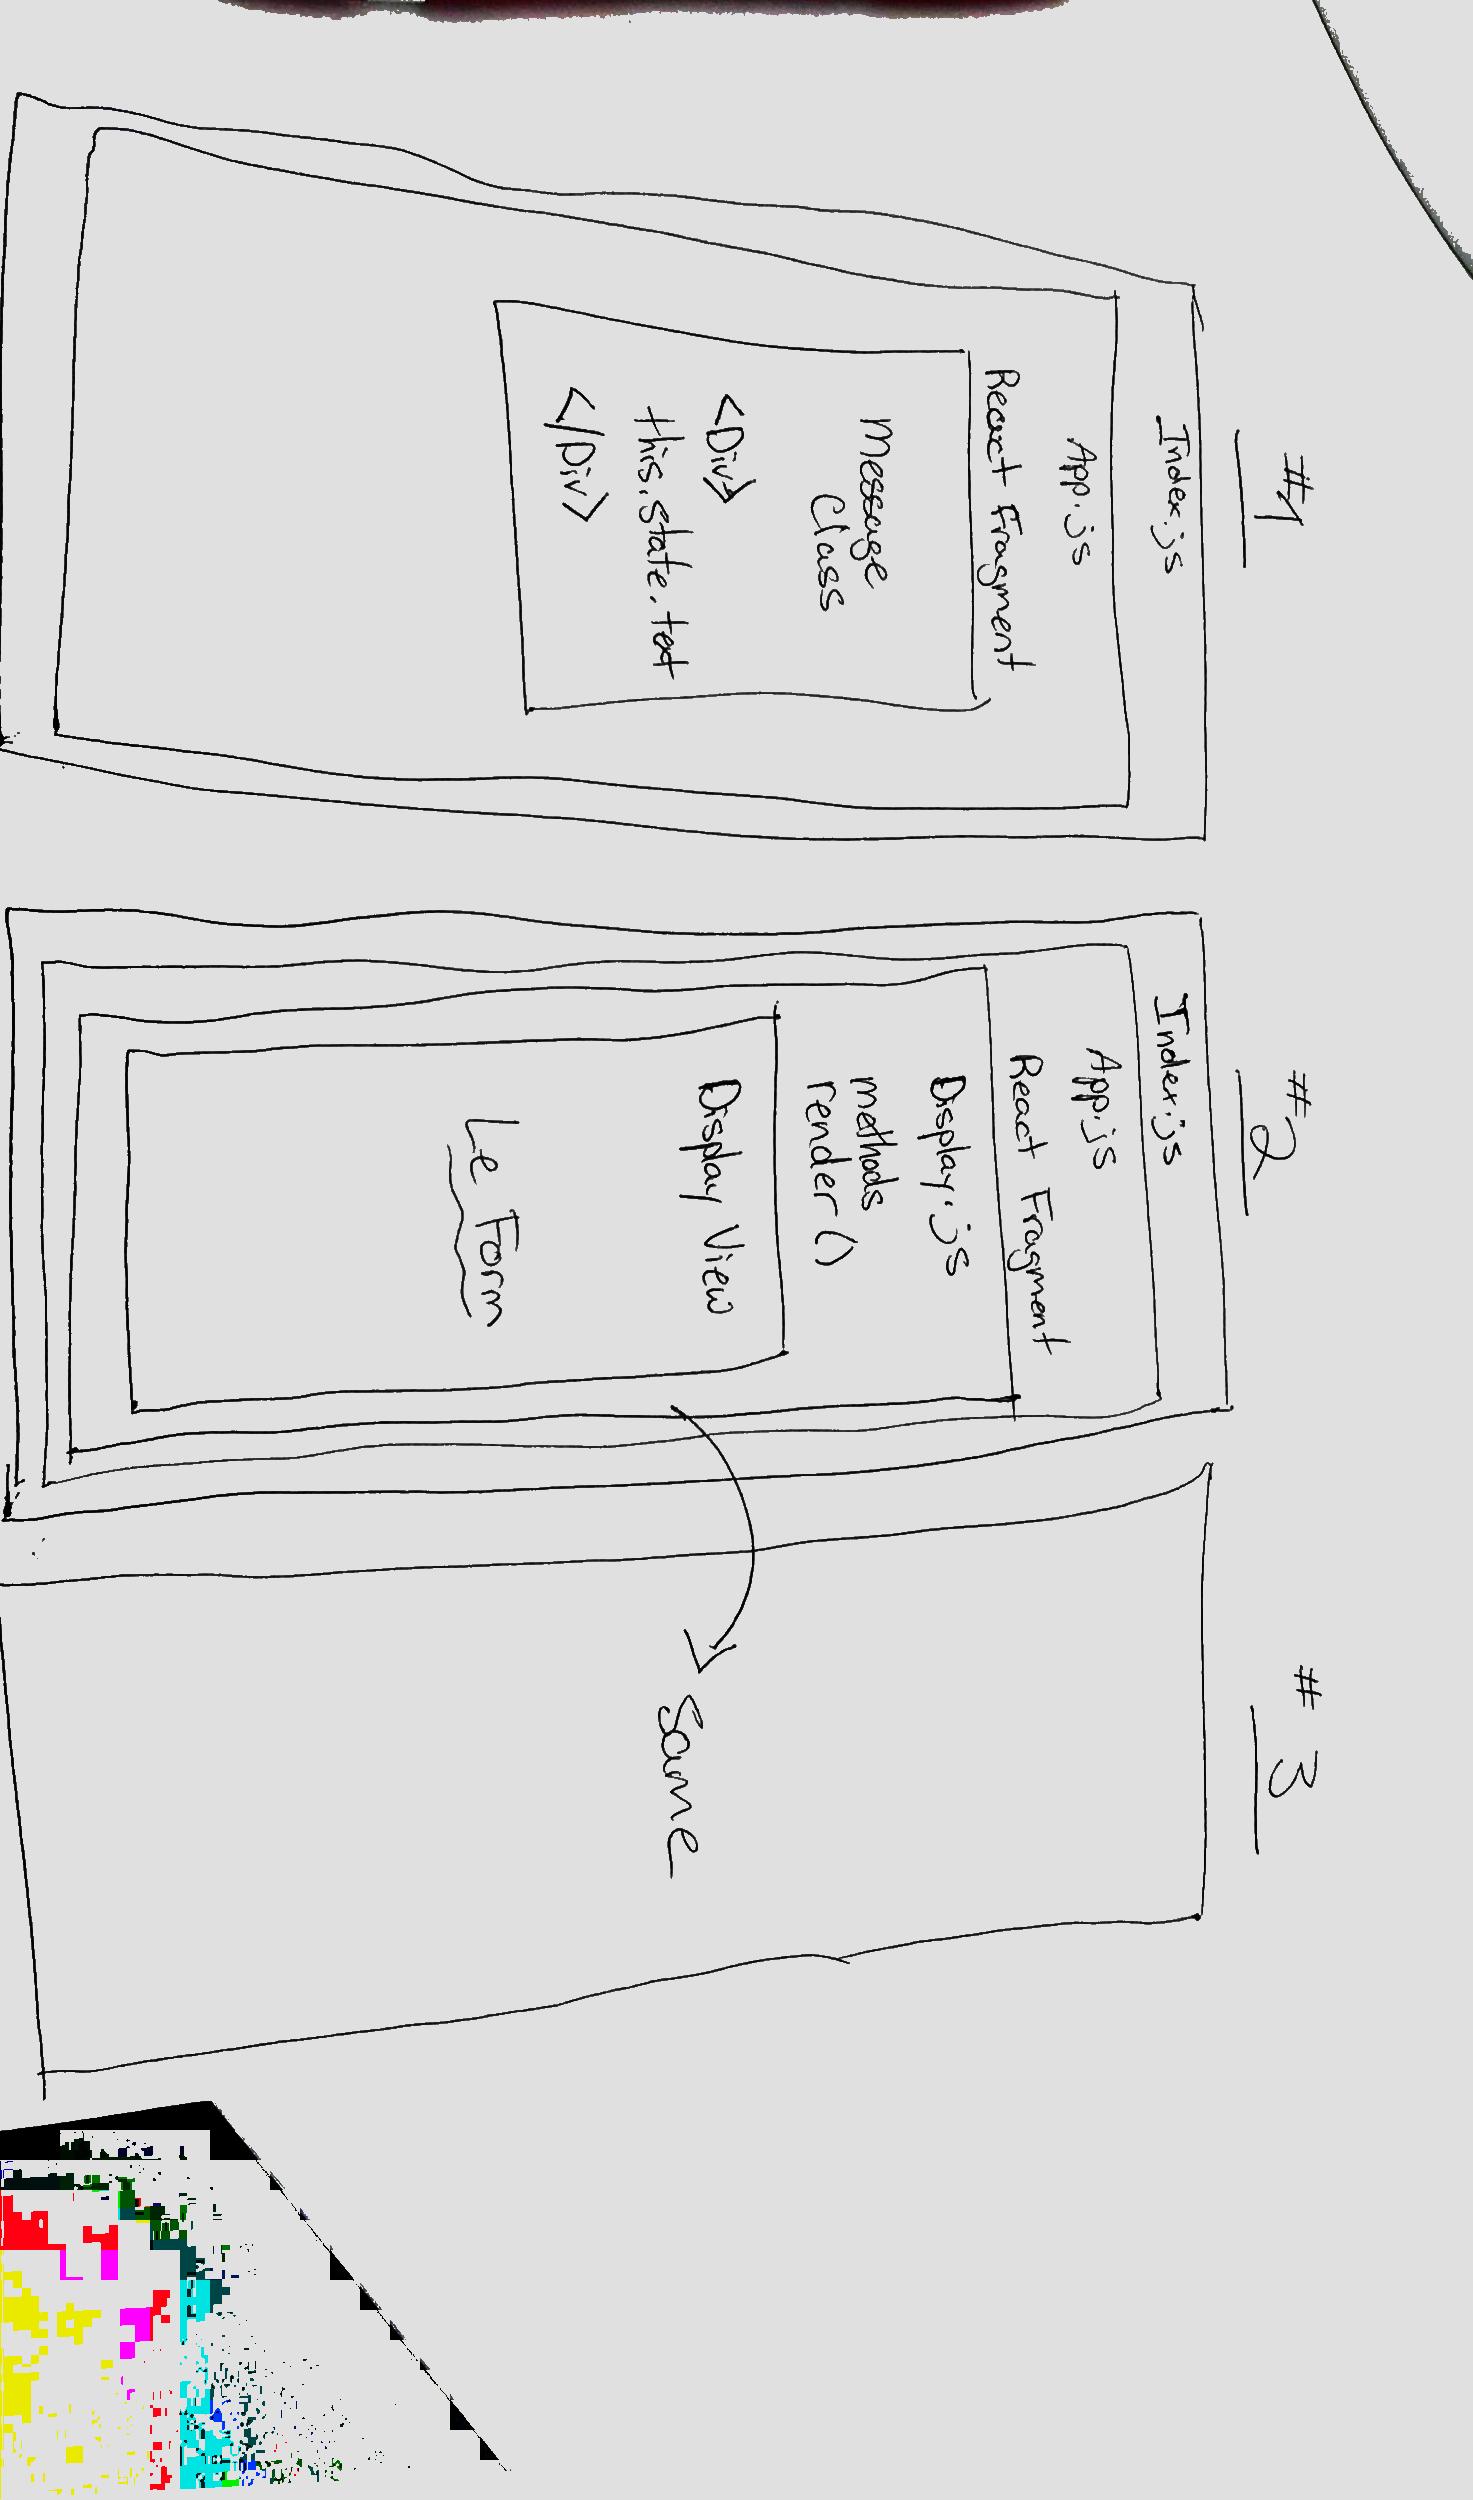 #1
Index.js
App.js
React Fragment
Message
Class
<Div>
this.state.text
</Div>
#2
Index.js
App.js
React Fragment
Display.js
methods
render()
Display View
Le Form
#3
Same